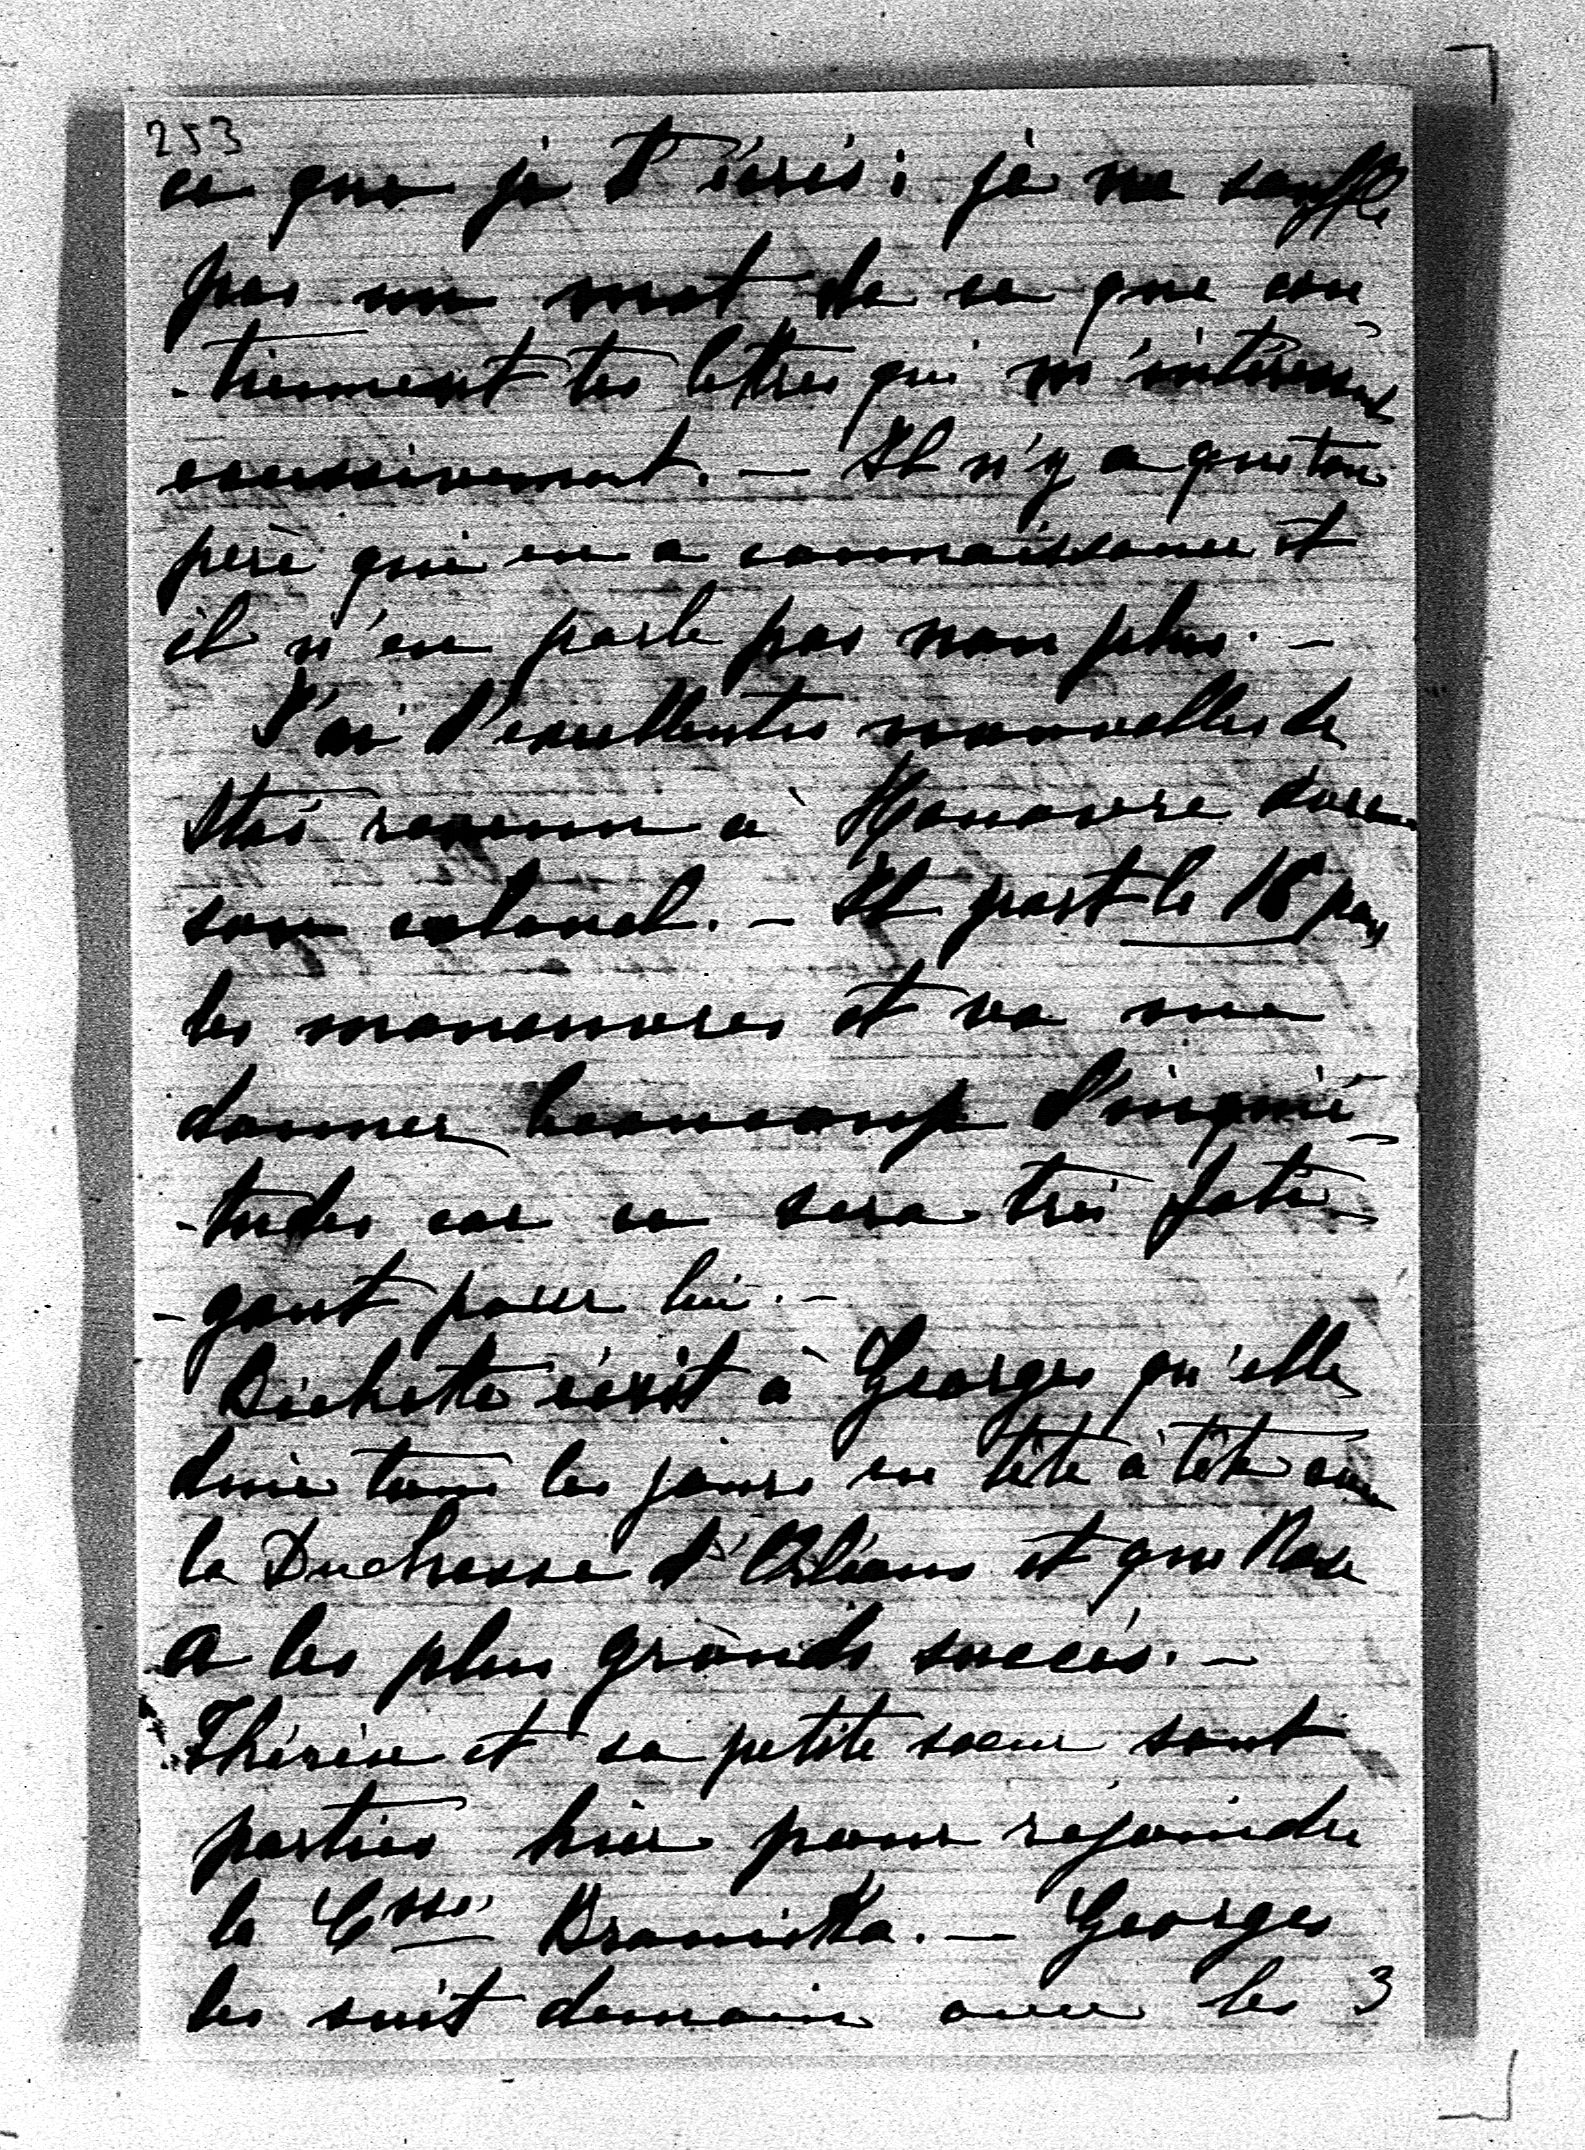 253
ce que je t'écris; je ne souffle
pas un mot de ce que con
-tiennent tes lettres qui m'intéressent
excessivement. — Il n'y a que ton
père qui en a connaissance et
il n'en parle pas non plus. —
J'ai d'excellentes nouvelles de
Stas revenu à Hanovre avec
son colonel. — Il part le 18 pour
les manœuvres et va me
donner beaucoup d'inquié-
-tudes car ce sera très fati-
-gant pour lui. —
Bichette écrit à Georges qu'elle
dine tous les jours en tête à tête avec
la Duchesse d'Orléans et que Rose
a les plus grands succès. —
Thérèse et sa petite sœur sont
parties hier pour rejoindre
la Csse Branicka. — Georges
les suit demain avec les 3